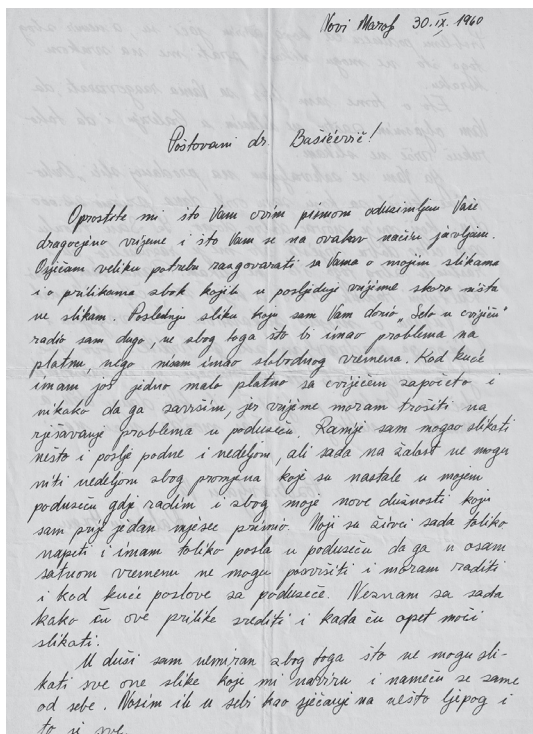 Novi Marof 30.IX. 1960
Poštovani dr. Bašičević!
Oprostite mi što Vam ovim pismom oduzimljem Vaše
dragocjeno vrijeme i što Vam se na ovakav način javljam.
Osjećam veliku potrebu razgovarati sa Vama o mojim slikama
i o prilikama zbok kojih u posljednje vrijeme skoro ništa
ne slikam. Poslednju sliku koju sam Vam donio „Selo u cvijeću"
radio sam dugo, ne zbog toga što bi imao problema na
platnu, nego nisam imao slobodnog vremena. Kod kuće
imam još jedno malo platno sa cvijećem započeto i
nikako da ga završim, jer vrijeme moram trošiti na
rješavanje problema u poduzeću. Ranije sam mogao slikati
nešto i poslje podne i nedeljom, ali sada na žalost ne mogu
niti nedeljom zbog promjena koje su nastale u mojem
poduzeću gdje radim i zbog moje nove dužnosti koju
sam prije jedan mjesec primio. Moji su živci sada toliko
napeti i imam toliko posla u poduzeću da ga u osam
satnom vremenu ne mogu površiti i moram raditi
i kod kuće poslove sa poduzeće. Neznam sa sada
kako ću ove prilike srediti i kada ću opet moći
slikati.
U duši sam nemiran zbog toga što ne mogu sli-
kati sve one slike koje mi naviru i nameću se same
od sebe. Nosim ih u sebi kao sjećanje na nešto ljepog i